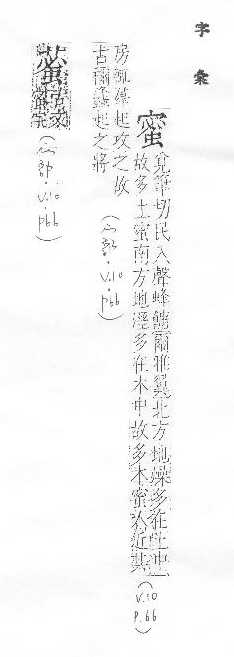 字彙
蜜
覓筆切民入聲蜂飴爾雅翼北方地燥多在土中
故多土蜜南方地溼多在木中故多木蜜人近其
(v.10 P.66)
房輒羣起攻之故
古謂蠭起之將
v.10 p66
古文
蜜字
v.10 p66